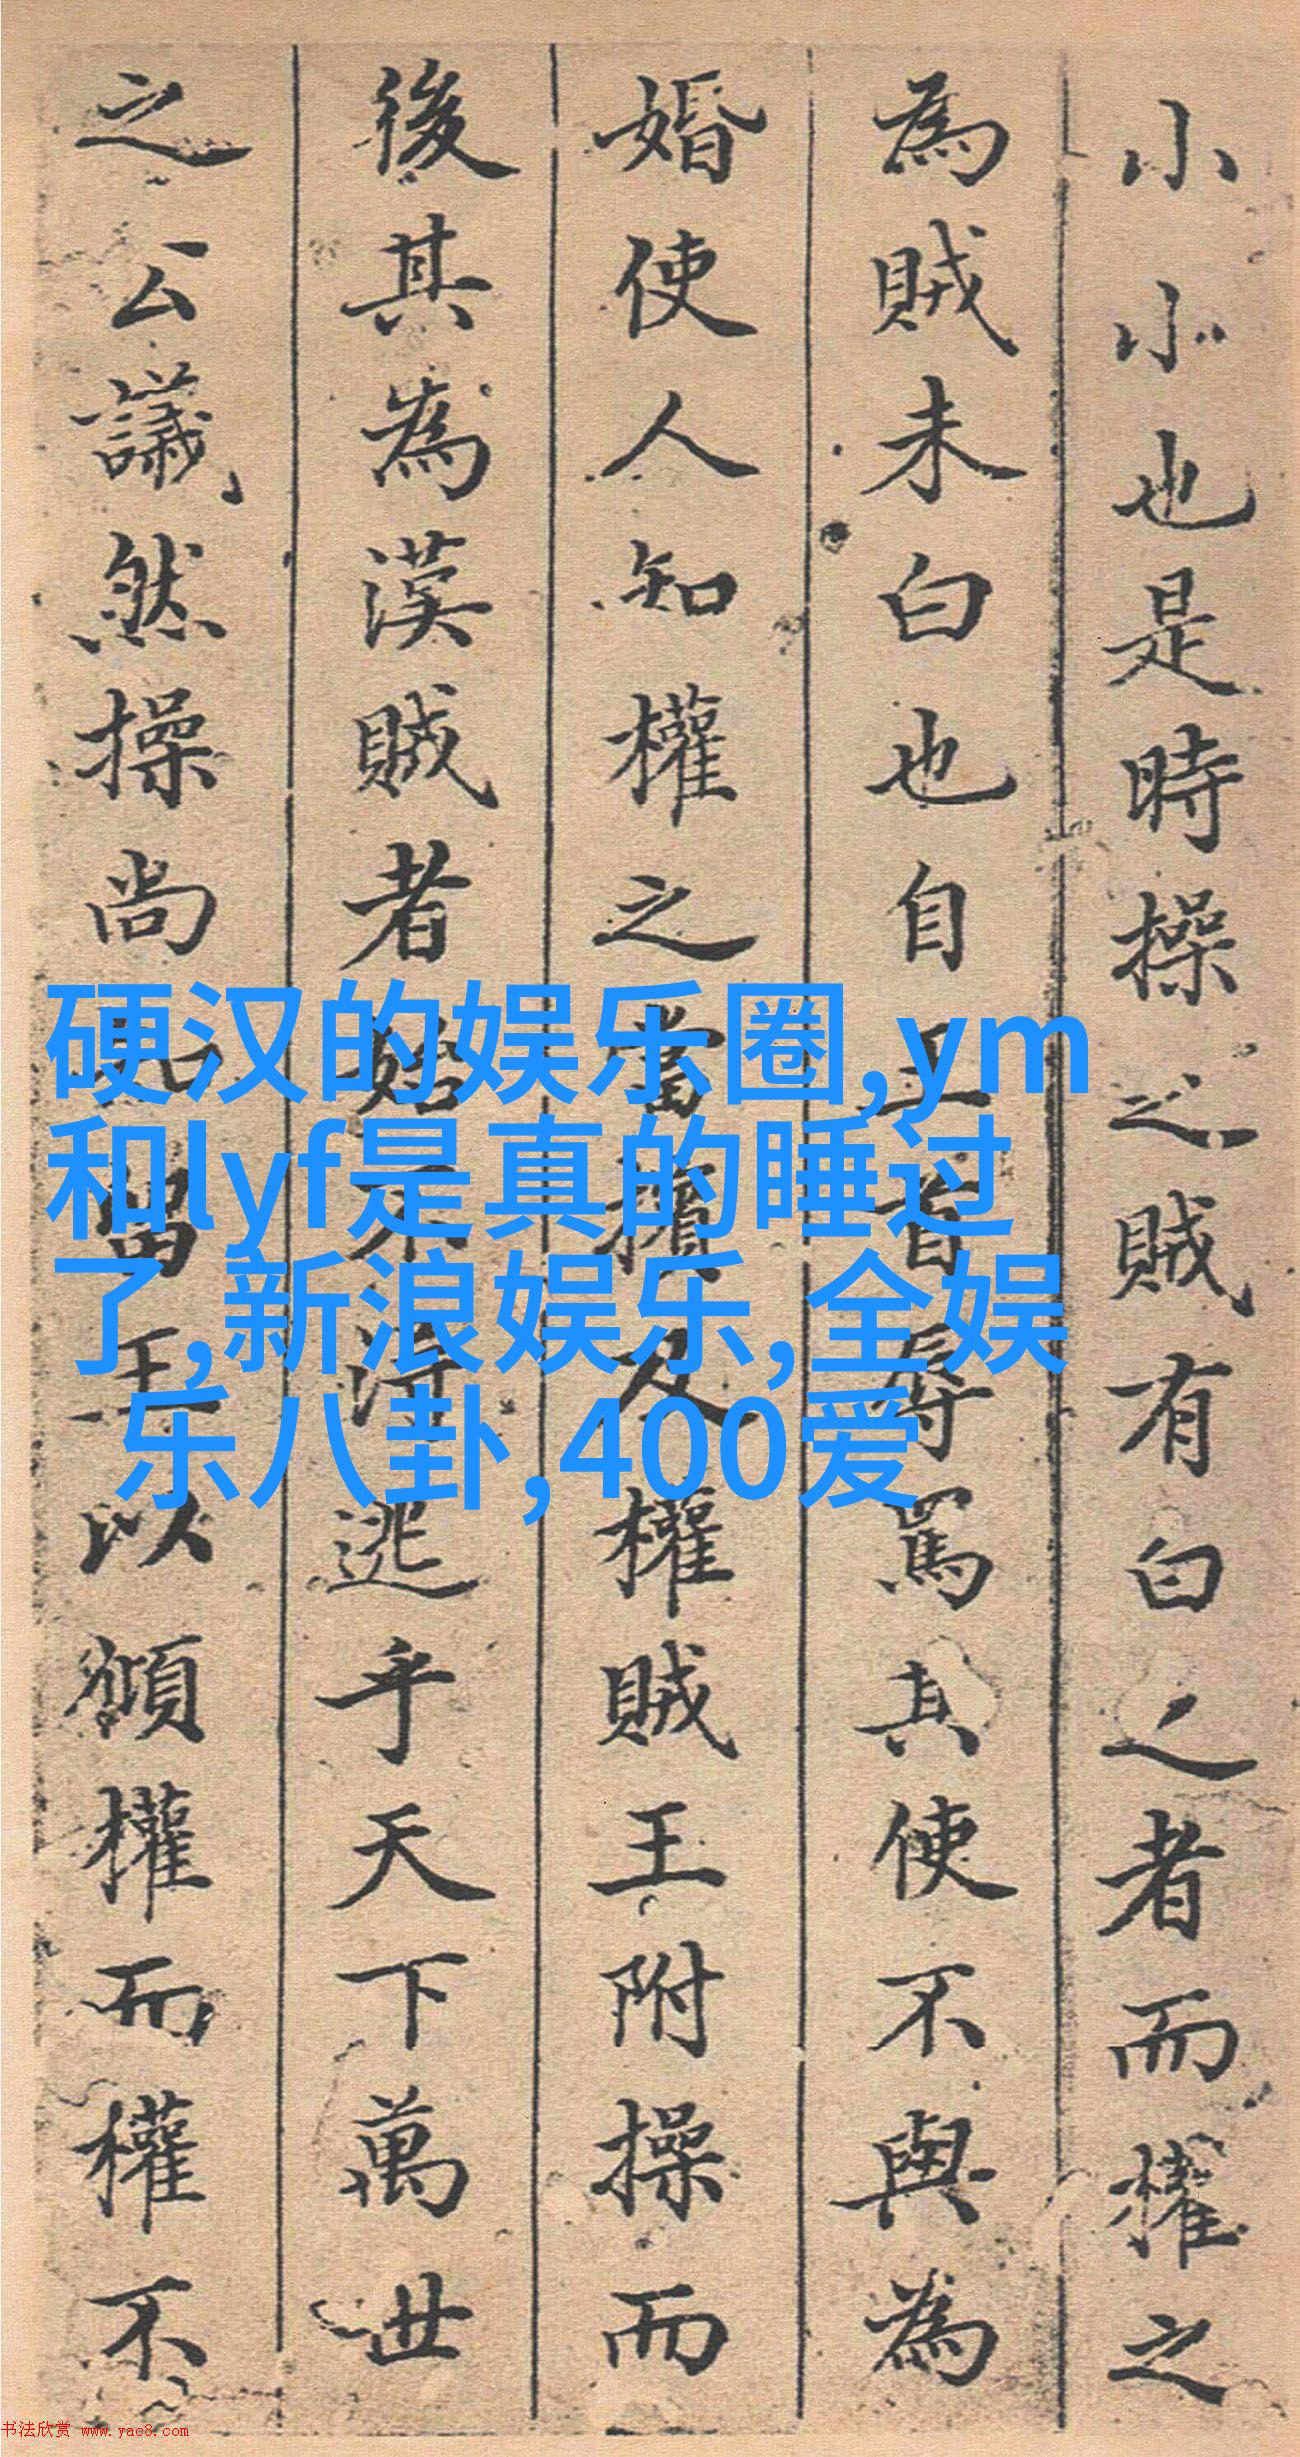 小小也是時操之賊有白之者而權之
為賊未白也自王者辱罵其使不與為
婚使人知權之當擯及權賊王附操而
後其為漢賊者始不得逃乎天下萬世
之公議然操尚以權而權不
硬汉的娱乐圈,ym
和lyf是真的睡过
了,新浪娱乐,全娱
乐八卦,400爱
书法欣赏 www.yac8.com